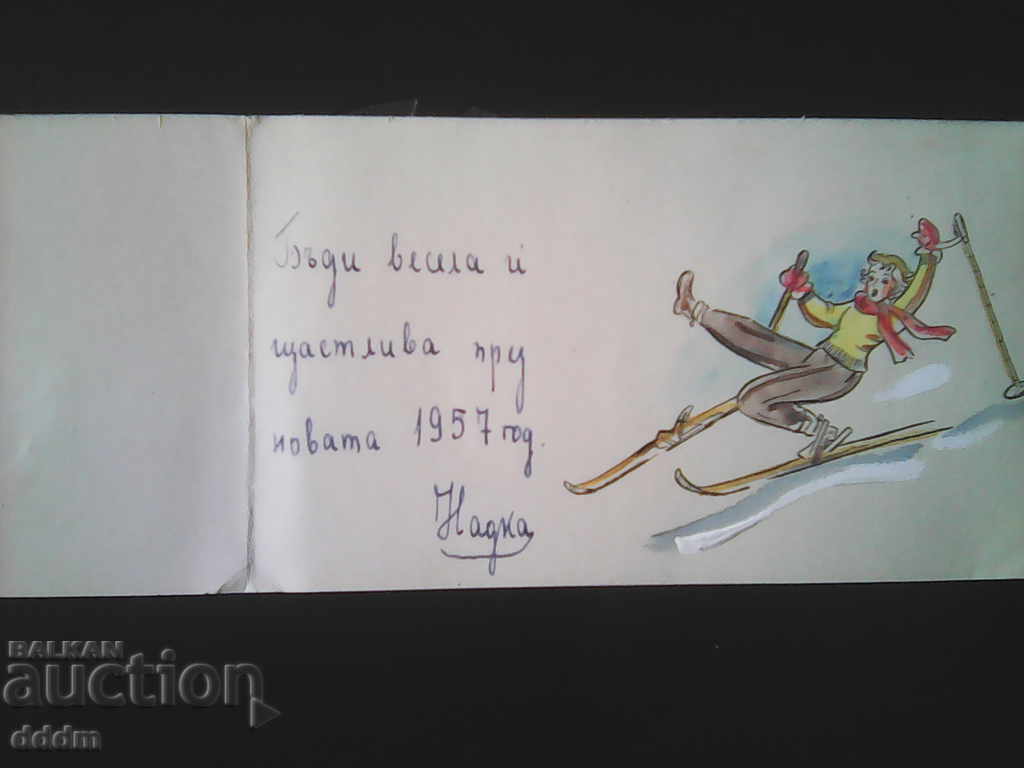 Бъди весела и
щастлива пру
новата 1957 год.
Надка
BALKAN
auction
dddm